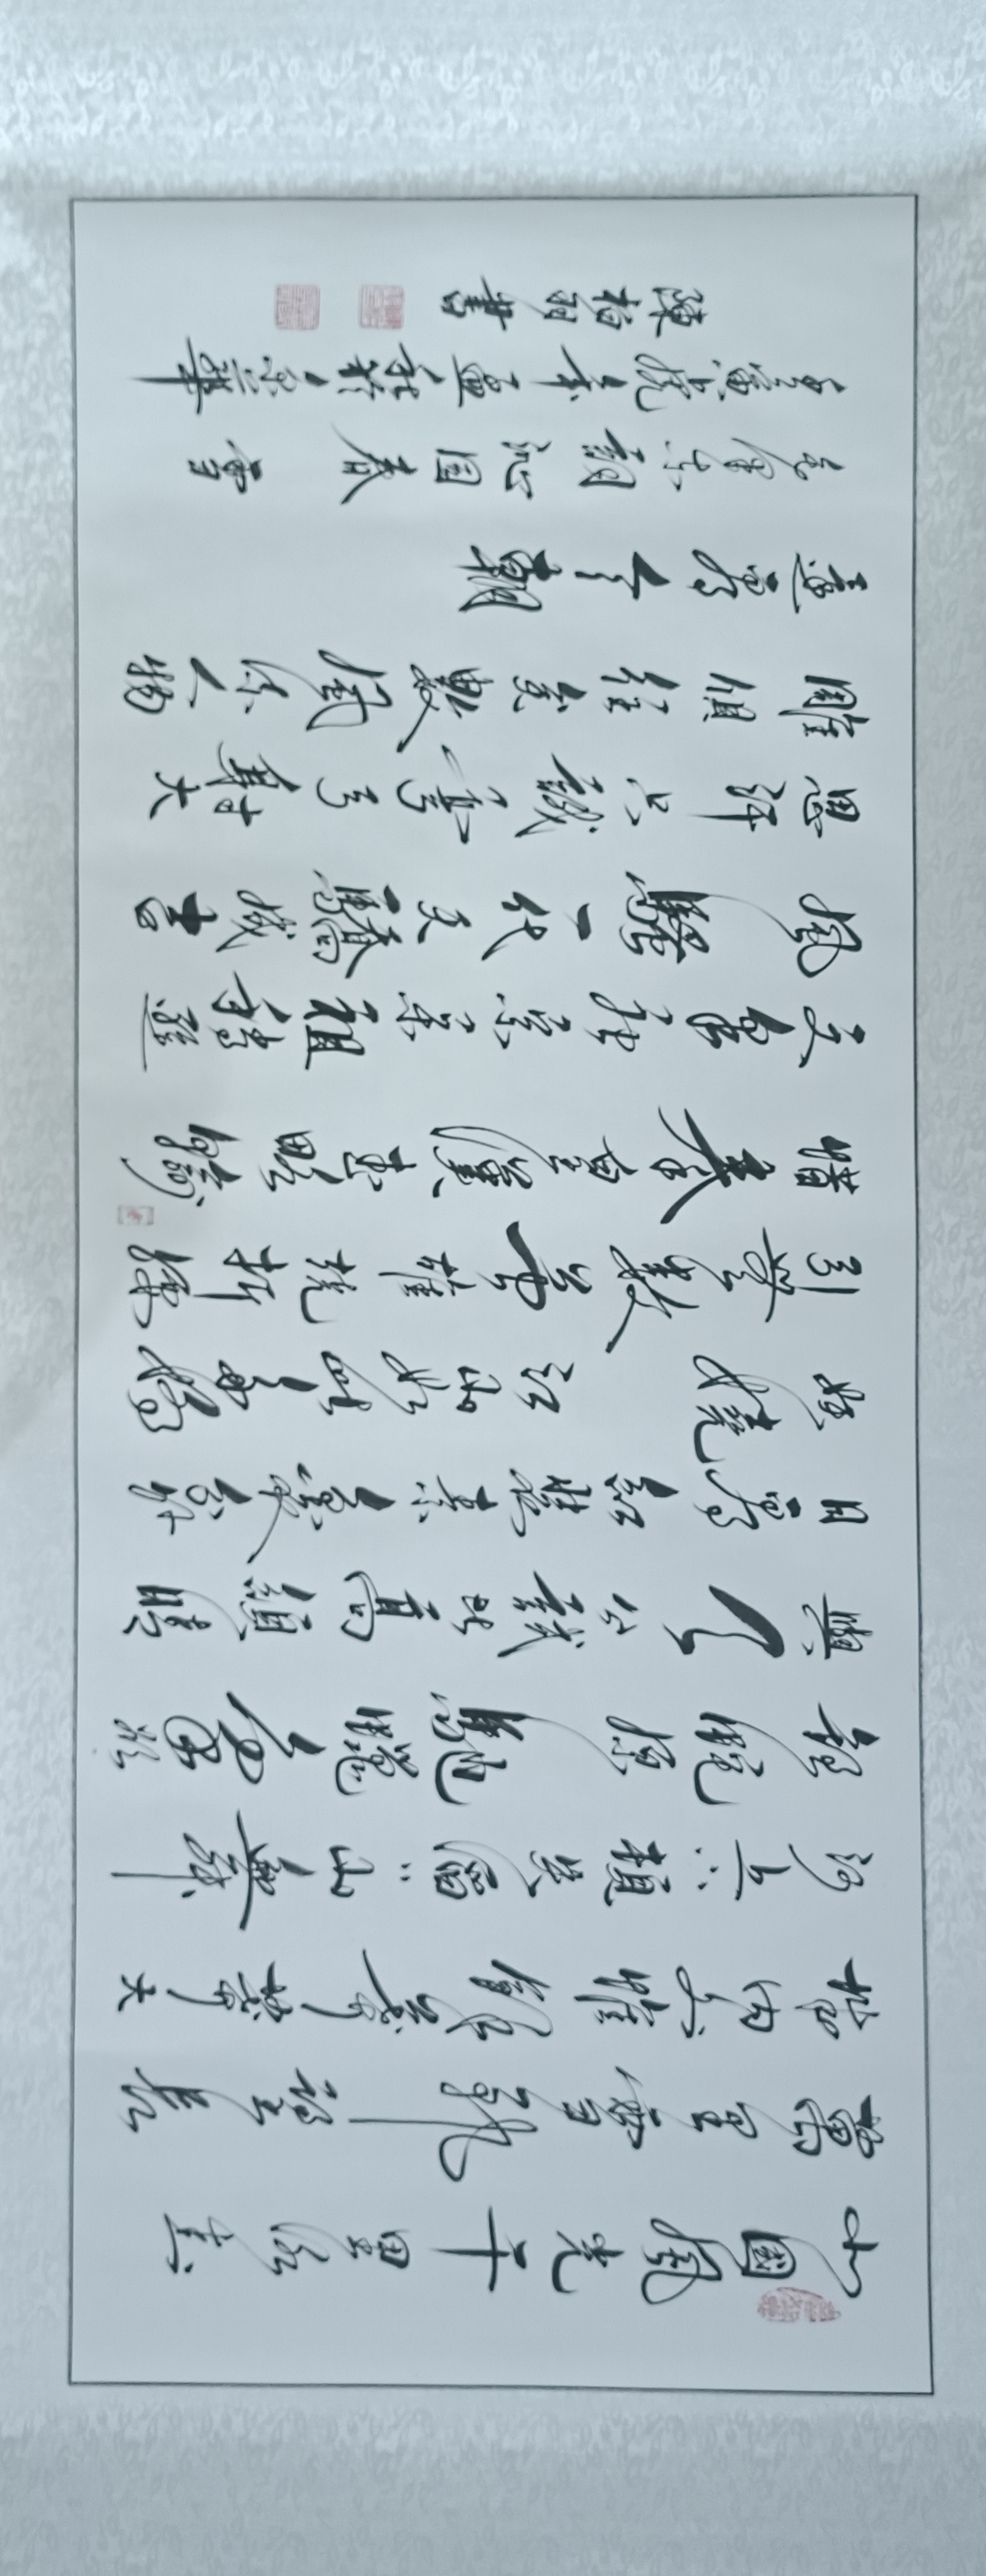 北國風光千里冰封
萬里雪飄望長
城内外惟餘莽莽大
河上下頓失滔滔山舞
銀蛇原馳蠟象欲
與天公試比高須晴
日看紅裝素裹分外
妖嬈 江山如此多嬌
引無數英雄競折腰
惜秦皇漢武略輸
文采唐宗宋祖稍遜
風騷一代天驕成吉
思汗只識彎弓射大
雕俱往矣數風流人物
還看今朝
毛澤東詞沁園春 雪
於京華
陳柏 書